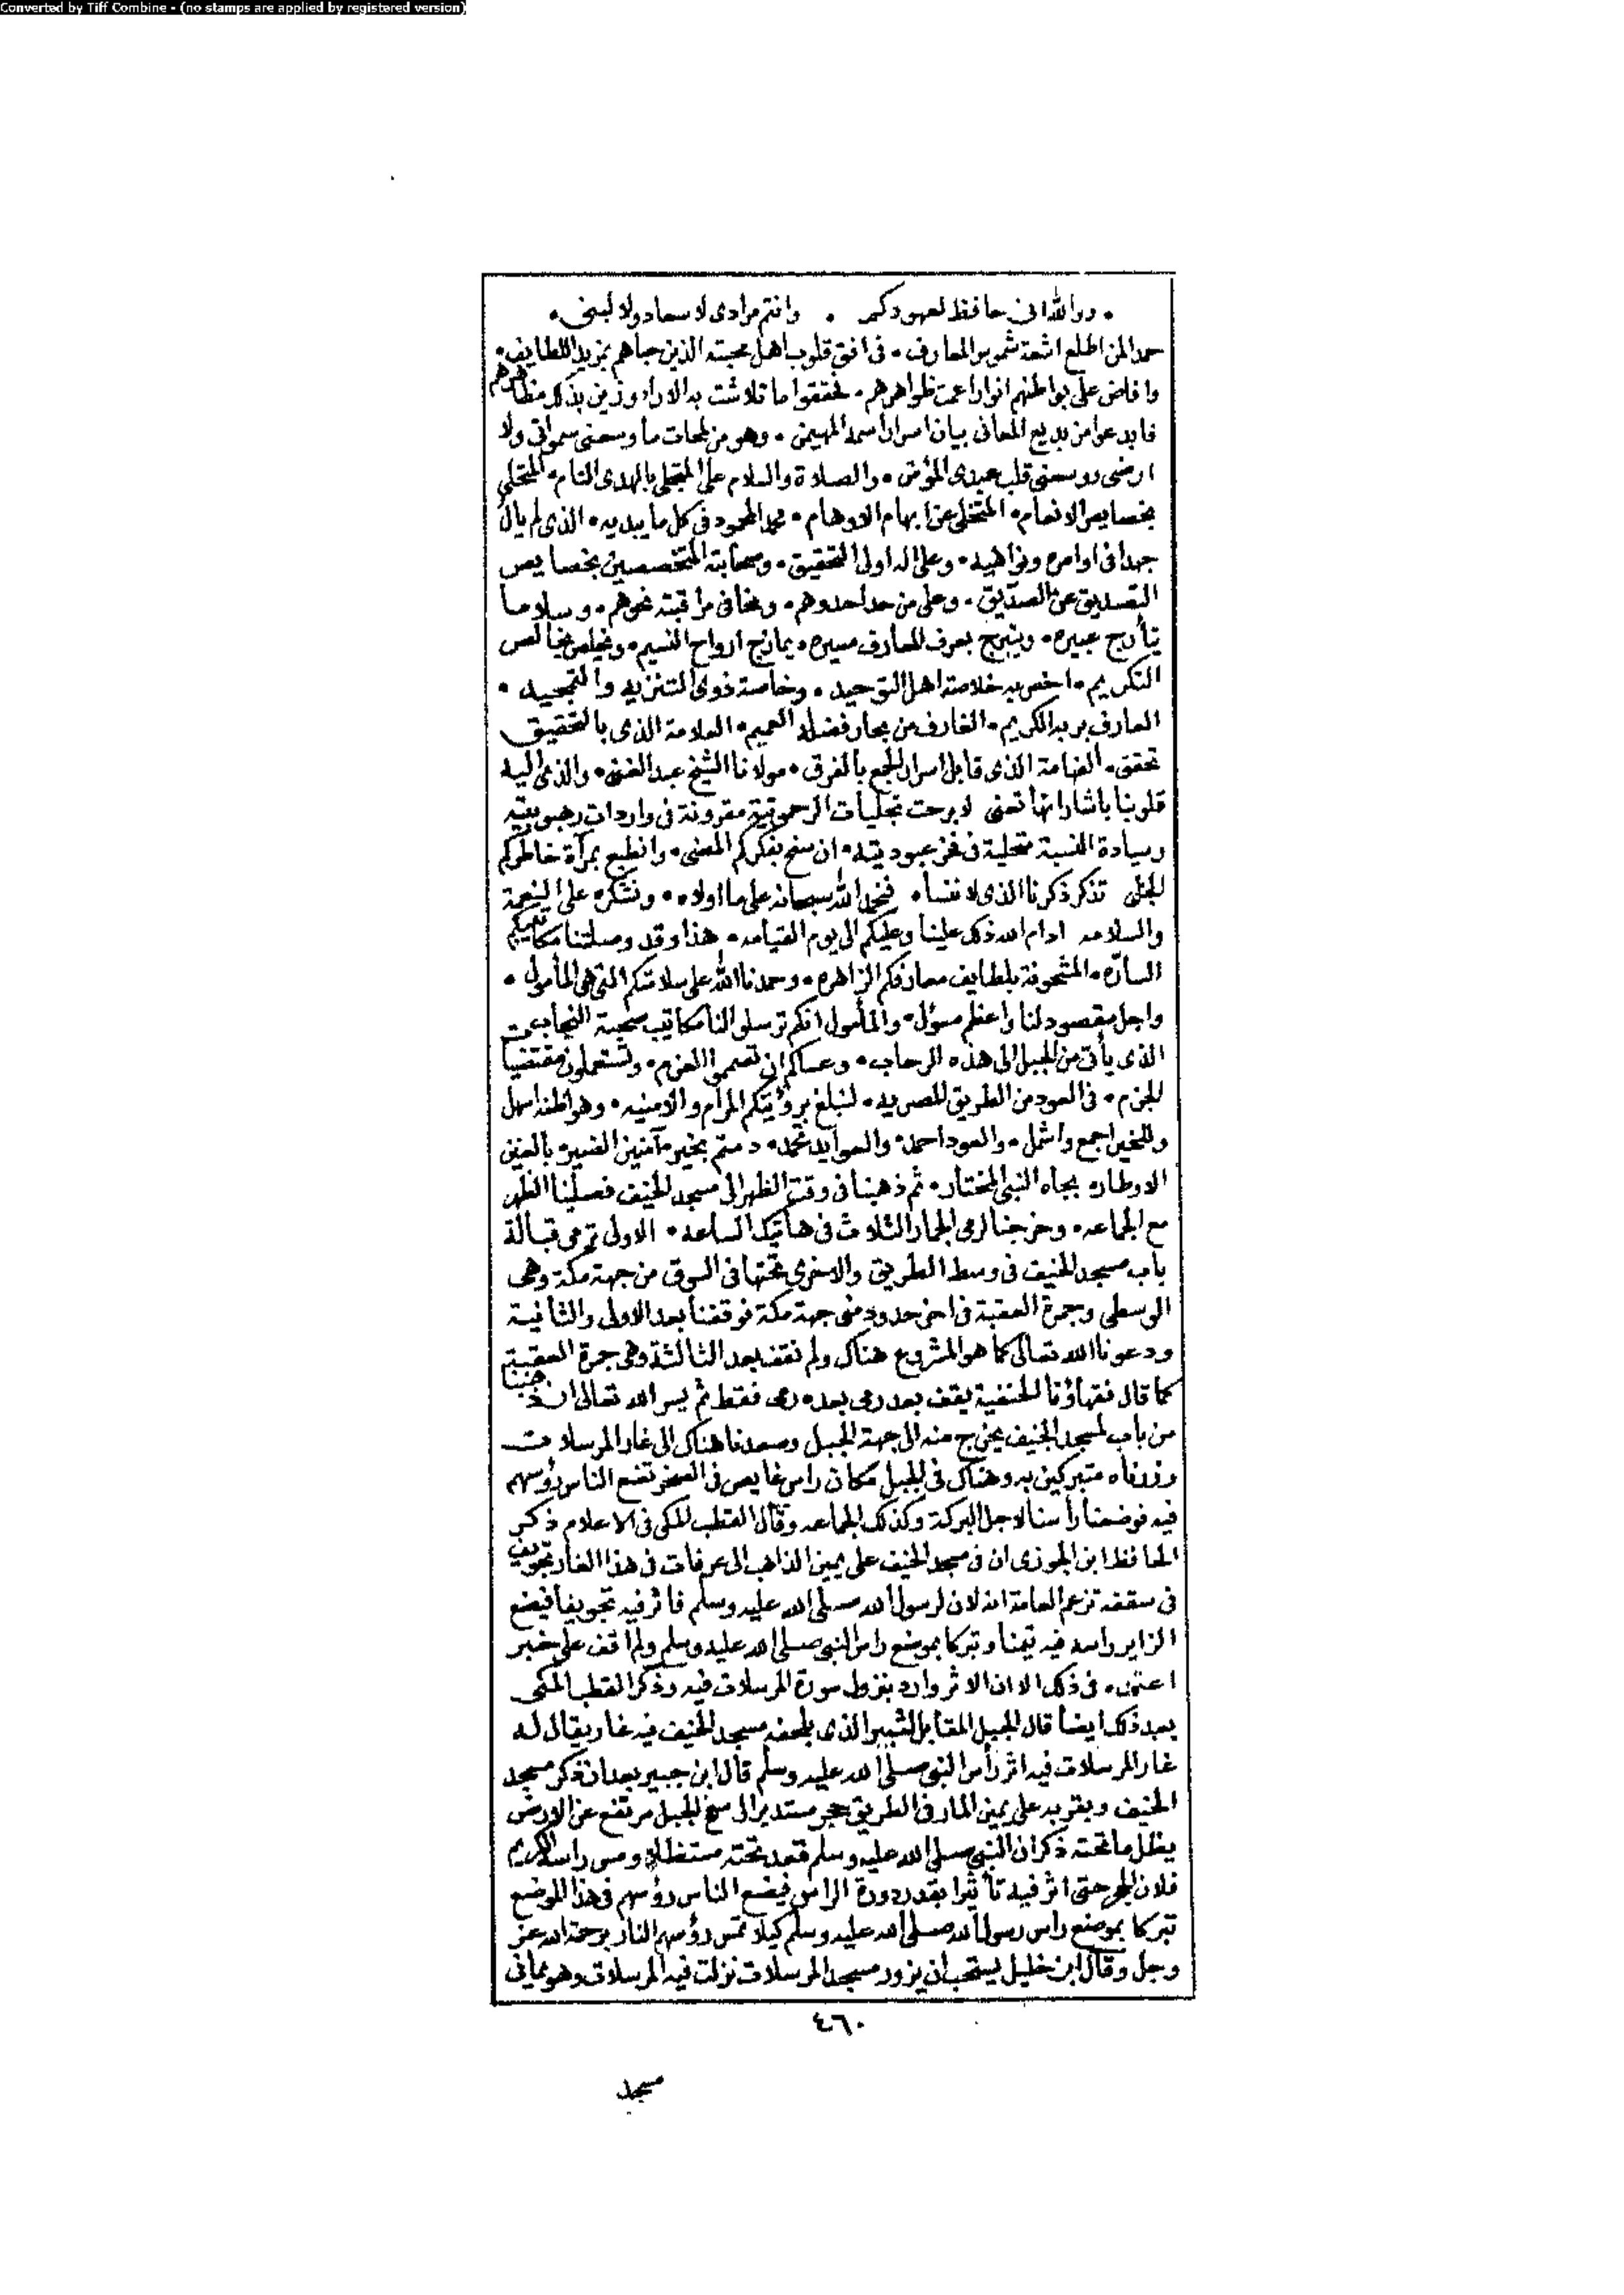 Converted by Tiff Combine - (no stamps are applied by registered version)
• ووالله انى حافظ لعهودكم • وانتم مرادى لا سعاد ولا لبنى •
حمدا لمن اطلع اشعة شموس المعارف • فى افق قلوب اهل محبته الذين حباهم بمزيد اللطايف •
وافاض على بواطنهم انوارا عمت ظواهرهم • فحققوا ما تلاشت به الاراء وزين بذلك مظاهرهم
فابدعوا من بديع المعانى بيان اسرار اسمه المهيمن • وهو من لمحات ما وسعنى سمواتى ولا
ارضى ووسعنى قلب عبدى المؤمن • والصلاة والسلام على المتجلى بالهدى التام • المتحلى
بخصايص الانعام • المتخلى عن ابهام الاوهام • محمد المحمود فى كل ما يبديه • الذى لم يال
جهدا فى اوامره ونواهيه • وعلى اله اولى التحقيق • وصحابته المتخصصين بخصايص
التصديق عن الصديق • وعلى من حدا حدوهم • ونحا فى مراقبته نحوهم • وسلاما
يتأرج عبيره • ويتبرج بعرف المعارف مسيره • يمازج ارواح النسيم • ويخلص بخالص
التكريم • اخص به خلاصة اهل التوحيد • وخاصة ذوى التنزيه والتمجيد •
العارف بربه الكريم • الغارف من بحار فضله العميم • العلامة الذى بالتحقيق
تحقق • الفهامة الذى قابل اسرار الجمع بالفرق • مولانا الشيخ عبد الغنى • والذى اليه
قلوبنا باشاراتها تعنى لا برحت تجليات الرحموتية مقرونة فى واردات رهبوتيته
وسيادة النسبة متحلية فى فخر عبوديته • ان سنح بفكركم المعنى • وانطبع بمرآة خاطركم
الجلى تذكر ذكرنا الذى لا ننساه فنحمد الله سبحانه على ما اولاه • ونشكره على النعمة
والسلامه ادام الله ذلك علينا وعليكم الى يوم القيامه • هذا وقد وصلتنا مكاتيبكم
السارّه • المشحونة بلطايف معارفكم الزاهره • وحمدنا الله على سلامتكم التى هى المأمول •
واجل مقصود لنا واعظم مسؤل • والمأمول انكم ترسلوا لنا مكاتيب صحبة النجاب
الذى يأتى من الجبل الى هذه الرحاب • وعساكم ان تصمموا العزم • وتستعملون مقتضيا
الجزم • فى العود من الطريق المصريه • لنبلغ برؤيتكم المرام والامنيه • وهو اظنه اسهل
وللخير اجمع واشمل • والعود احمد • والعوايد تحمد • دمتم بخير آمنين
الاوطار • بجاه النبى المختار • ثم ذهبنا فى وقت الظهر الى مسجد الخيف فصلينا الظهر
مع الجماعه • وخرجنا لرمى الجمار الثلاث فى هاتيك الساعه • الاولى ترمى قبالة
باب مسجد الخيف فى وسط الطريق والاخرى تحتها فى السوق من جهة مكة وهى
الوسطى وجمرة العقبة فى اخر حدود منى جهة مكة فوقفنا بعد الاولى والثانية
ودعونا الله تعالى كما هو المشروع هناك ولم نقف بعد الثالثة وهى جمرة العقبة
كما قال فقهاؤنا الحنفية يقف بعد رمى بعده رمى فقط ثم يسر الله تعالى ان خرجنا
من باب لمسجد الخيف يخرج منه الى جهة الجبل وصعدنا هناك الى غار المرسلات
وزرناه متبركين به وهناك فى الجبل مكان راس غايص فى الصخر تضع الناس رؤسهم
فيه فوضعنا رأسنا لاجل البركة وكذلك الجماعه وقال القطب المكى فى الاعلام ذكر
الحافظ ابن الجوزى ان فى مسجد الخيف على يمين الذاهب الى عرفات فى هذا الغار تجويف
فى سقفه تزعم العامة انه لان لرسول الله صلى الله عليه وسلم فاثر فيه تجويفا فيضع
الزاير راسه فيه تيمنا وتبركا بموضع راس النبى صلى الله عليه وسلم ولم اقف على خبر
اعتمده فى ذلك الا ان الاثر وارد بنزول سورة المرسلات فيه وذكر القطب المكى
بعد ذلك ايضا قال الجبل المقابل لثبير الذى بلحفه مسجد الخيف فيه غار يقال له
غار المرسلات فيه اثر رأس النبى صلى الله عليه وسلم قال ابن جبير بعد ان ذكر مسجد
الخيف وبقربه على يمين المار فى الطريق حجر مستدير الى سفح الجبل مرتفع عن الارض
يظل ما تحته ذكر ان النبى صلى الله عليه وسلم قعد تحته مستظلا ومس راسه الكريم
فلان الحجر حتى اثر فيه تأثيرا بقدر دورة الراس فيضع الناس رؤسهم فى هذا الموضع
تبركا بموضع راس رسول الله صلى الله عليه وسلم كيلا تمس رؤسهم النار برحمة الله عز
وجل وقال ابن خليل يستحب ان يزور مسجد المرسلات نزلت فيه المرسلات وهو يمانى
٤٦٠
مسجد